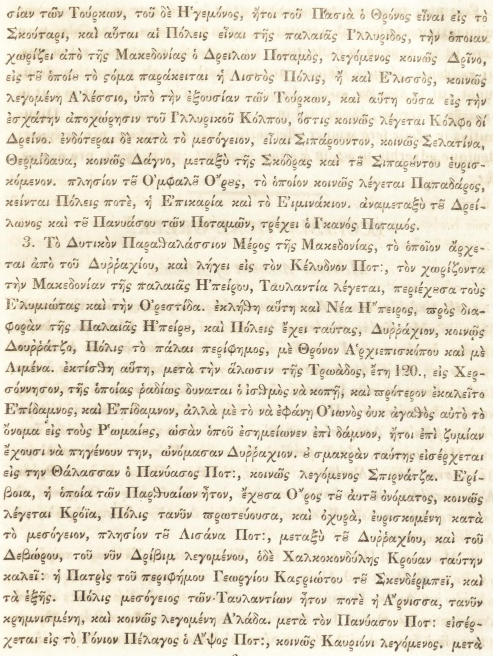 σίαν τῶν Τούρκων, τοῦ δὲ Ἡγεμόνος, ἤτοι τοῦ Πασιᾶ ὁ Θρόνος εἶναι εἰς τὸ
Σκούταρι, καὶ αὗται αἱ Πόλεις εἶναι τῆς παλαιᾶς Ἰλλυρίδος, τὴν ὁποίαν
χωρίζει ἀπὸ τῆς Μακεδονίας ὁ Δρείλων Ποταμὸς, λεγόμενος κοινῶς Δρῖνο,
εἰς τȣ͂ ὁποίȣ τὸ ϛόμα παράκειται ἡ Λισϛὸς Πόλις, ἢ καὶ Ἔλισσὸς, κοινῶς
λεγομένη Ἀλέσσιο, ὑπὸ τὴν ἐξουσίαν τῶν Τούρκων, καὶ αὕτη οὖσα εἰς τὴν
ἐσχάτην ἀποχώρησιν τοῦ Ἰλλυρικοῦ Κόλπου, ὅϛις κοινῶς λέγεται Κόλφο δὶ
Δρείνο. ἐνδότεραι δὲ κατὰ τὸ μεσόγειον, εἶναι Σιπάρουντον, κοινῶς Σελατίνα,
Θερμίδαυα, κοινῶς Δάγνο, μεταξὺ τῆς Σκόδρας καὶ τȣ͂ Σιπαρȣ́ντου εὑρισ-
κόμενον. πλησίον τȣ͂ Ὀμφαλȣ͂ Ὄρȣς, τὸ ὁποῖον κοινῶς λέγεται Παπαδάρος,
κεῖνται Πόλεις ποτὲ, ἡ Ἐπικαρία καὶ τὸ Εἰμινάκιον. ἀναμεταξὺ τȣ͂ Δρεί-
λωνος καὶ τȣ͂ Πανυάσου τῶν Ποταμῶν, τρέχει ὁ Ἰκανὸς Ποταμός.
3. Τὸ Δυτικὸν Παραθαλάσσιον Μέρος τῆς Μακεδονίας, τὸ ὁποῖον ἄρχε-
ται ἀπὸ τοῦ Δυῤῥαχίου, καὶ λήγει εἰς τὸν Κέλυδνον Ποτ:, τὸν χωρίζοντα
τὴν Μακεδονίαν τῆς παλαιᾶς Ἠπείρου, Ταυλαντία λέγεται, περιέχȣσα τοὺς
Ἐλυμιώτας καὶ τὴν Ὀρεϛίδα. ἐκλήθη αὕτη καὶ Νέα Ἤπειρος, πρὸς δια-
φορὰν τῆς Παλαιᾶς Ἠπείρȣ, καὶ Πόλεις ἔχει ταύτας, Δυῤῥάχιον, κοινῶς
Δουῤῥάτζο, Πόλις τὸ πάλαι περίφημος, μὲ Θρόνον Ἀρχιεπισκόπου καὶ μὲ
Λιμένα. ἐκτίσθη αὕτη, μετὰ τὴν ἅλωσιν τῆς Τρωάδος, ἔτη 120., εἰς Χερ-
σόννησον, τῆς ὁποίας ῥαδίως δυναται ὁ ἰσθμὸς νὰ κοπῇ, καὶ πρότερον ἐκαλεῖτο
Ἐπίδαμνος, καὶ Ἐπίδαμνον, ἀλλὰ μὲ τὸ νὰ ἐφάνη Ὀιωνὸς οὐκ ἀγαθὸς αὐτὸ τὸ
ὄνομα εἰς τοὺς Ῥωμαίȣς, ὡσὰν ὁποῦ ἐσημείωνεν ἐπὶ δάμνον, ἤτοι ἐπὶ ζυμίαν
ἔχουσι νὰ πηγένουν την, ὠνόμασαν Δυῤῥαχιον. ȣ σμακρὰν ταύτης εἰσέρχεται
εἰς την Θάλασσαν ὁ Πανύασος Ποτ:, κοινῶς λεγόμενος Σπιρνάτζα. Ἐρί-
βοια, ἡ ὁποία τῶν Παρθυαίων ἦτον, ἔχȣσα Ὄρος τȣ͂ αὐτȣ͂ ὀνόματος, κοινῶς
λέγεται Κρόϊα, Πόλις τανῦν πρωτεύουσα, καὶ ὀχυρὰ, εὑρισκομένη κατὰ
τὸ μεσόγειον, πλησίον τȣ͂ Λισάνα Ποτ:, μεταξὺ τȣ͂ Δυῤῥαχίου, καὶ τοῦ
Δεβώρου, τοῦ νῦν Δρίβιμ λεγομένου, ὁδὲ Χαλκοκονδύλης Κρούαν ταύτην
καλεῖ: ἡ Πατρὶς τοῦ περιφήμου Γεωργίου Καϛριώτου τȣ͂ Σκενδέρμπεϊ, καὶ
τὰ ἑξῆς. Πόλις μεσόγειος τῶν Ταυλαντίων ἦτον ποτὲ ἡ Ἄρνισσα, τανῦν
κρημνισμένη, καὶ κοινῶς λεγομένη Ἀλάδα. μετὰ τὸν Πανύασον Ποτ: εἰσέρ-
χεται εἰς τὸ Ἰόνιον Πέλαγος ὁ Ἄψος Ποτ:, κοινῶς Καυριόνι λεγόμενος. μετὰ